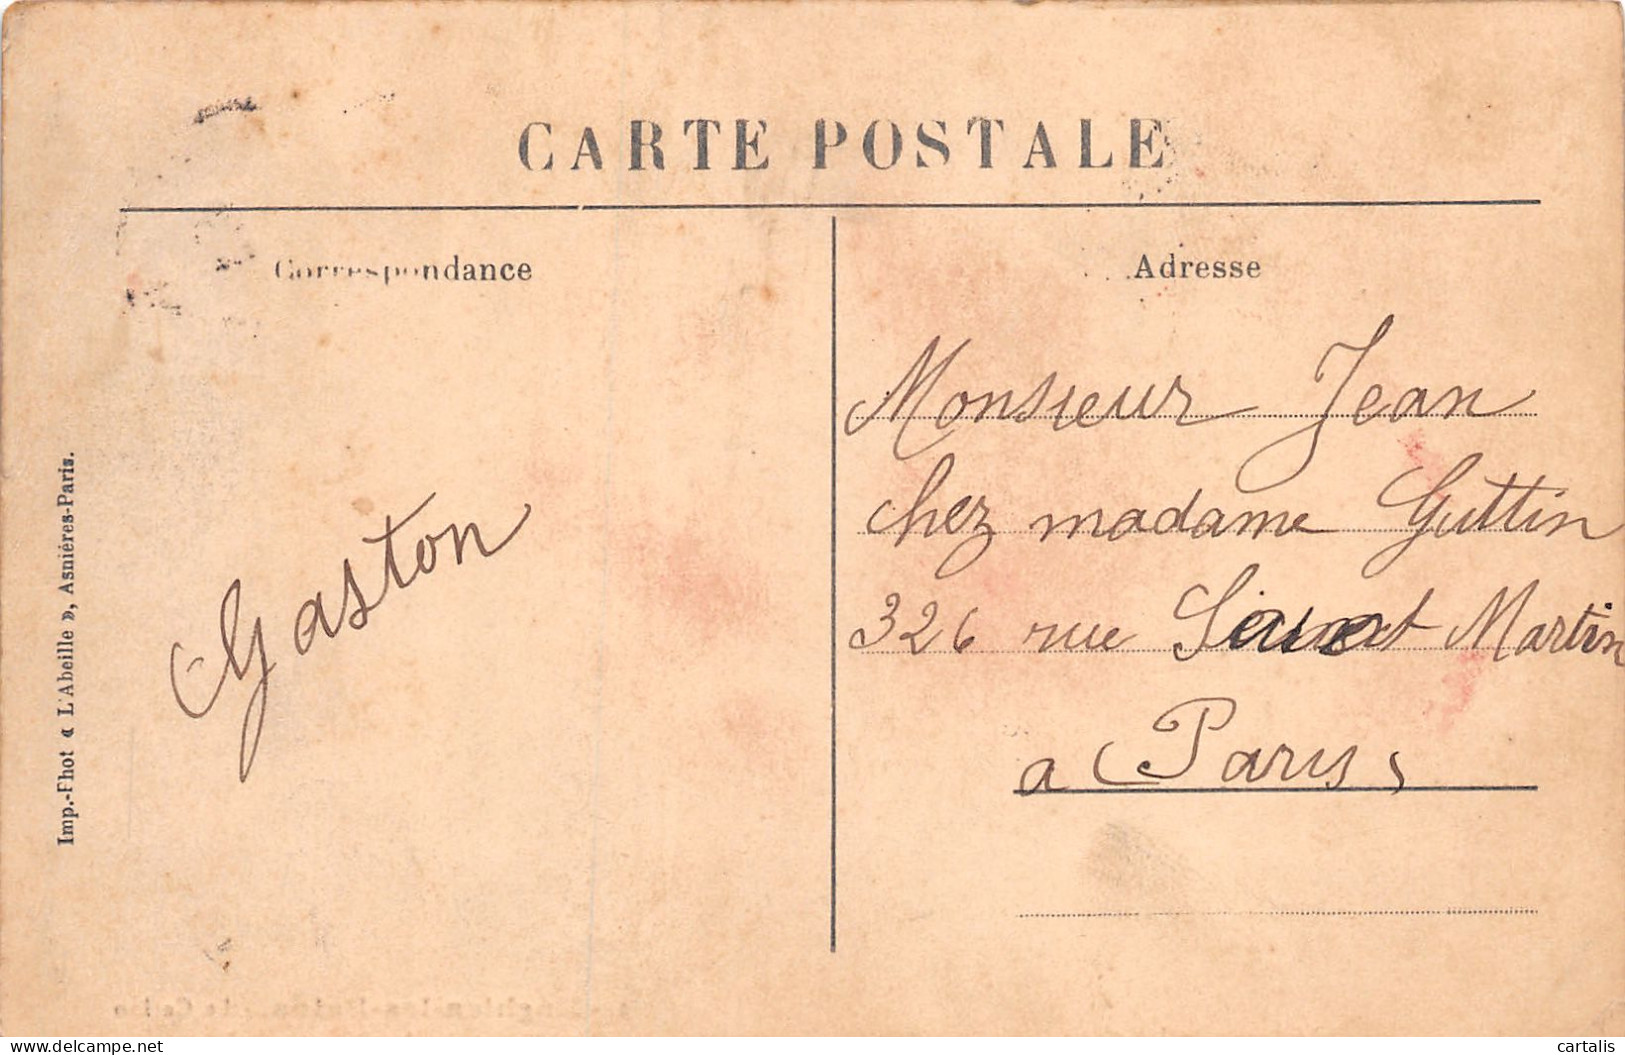 CARTE POSTALE
Correspondance
Adresse
Monsieur Jean
chez madame Guttin
326 rue Saint Martin
a Paris,
Gaston
Imp.-Phot « L'Abeille », Asnières-Paris.
delcampe.net
cartalis